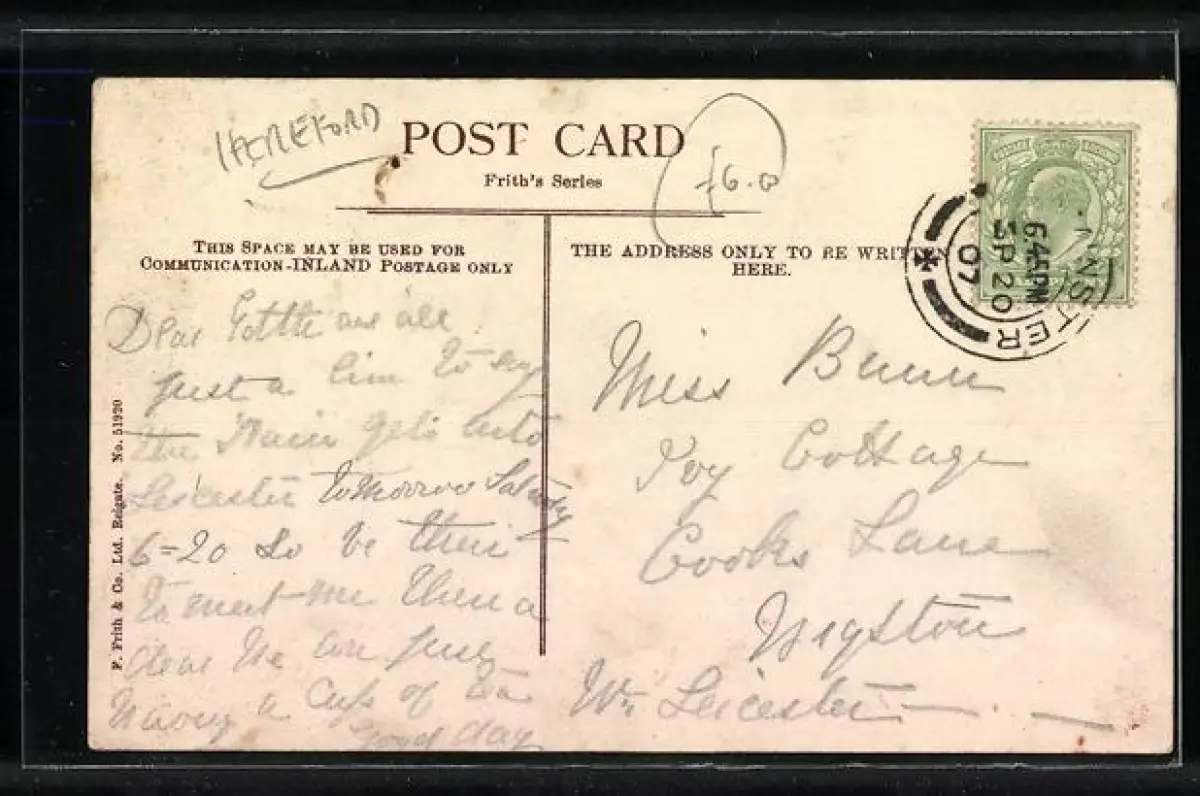 HEREFORD
POST CARD
£6.0
Frith's Series
THIS SPACE MAY BE USED FOR
COMMUNICATION-INLAND POSTAGE ONLY
THE ADDRESS ONLY TO BE WRITTEN
HERE.
NSTER
6 44 PM
SP 20
07
Dear and all
just a line to say
the Train gets into
Leicester tomorrow
6=20 so be their
to meet me
dear We are just
having a cup of tea
Good day
Miss
Ivy Cottage
Cooks Lane
Wigston
Nr Leicester
F. Frith & Co. Ltd. Reigate. No. 51920